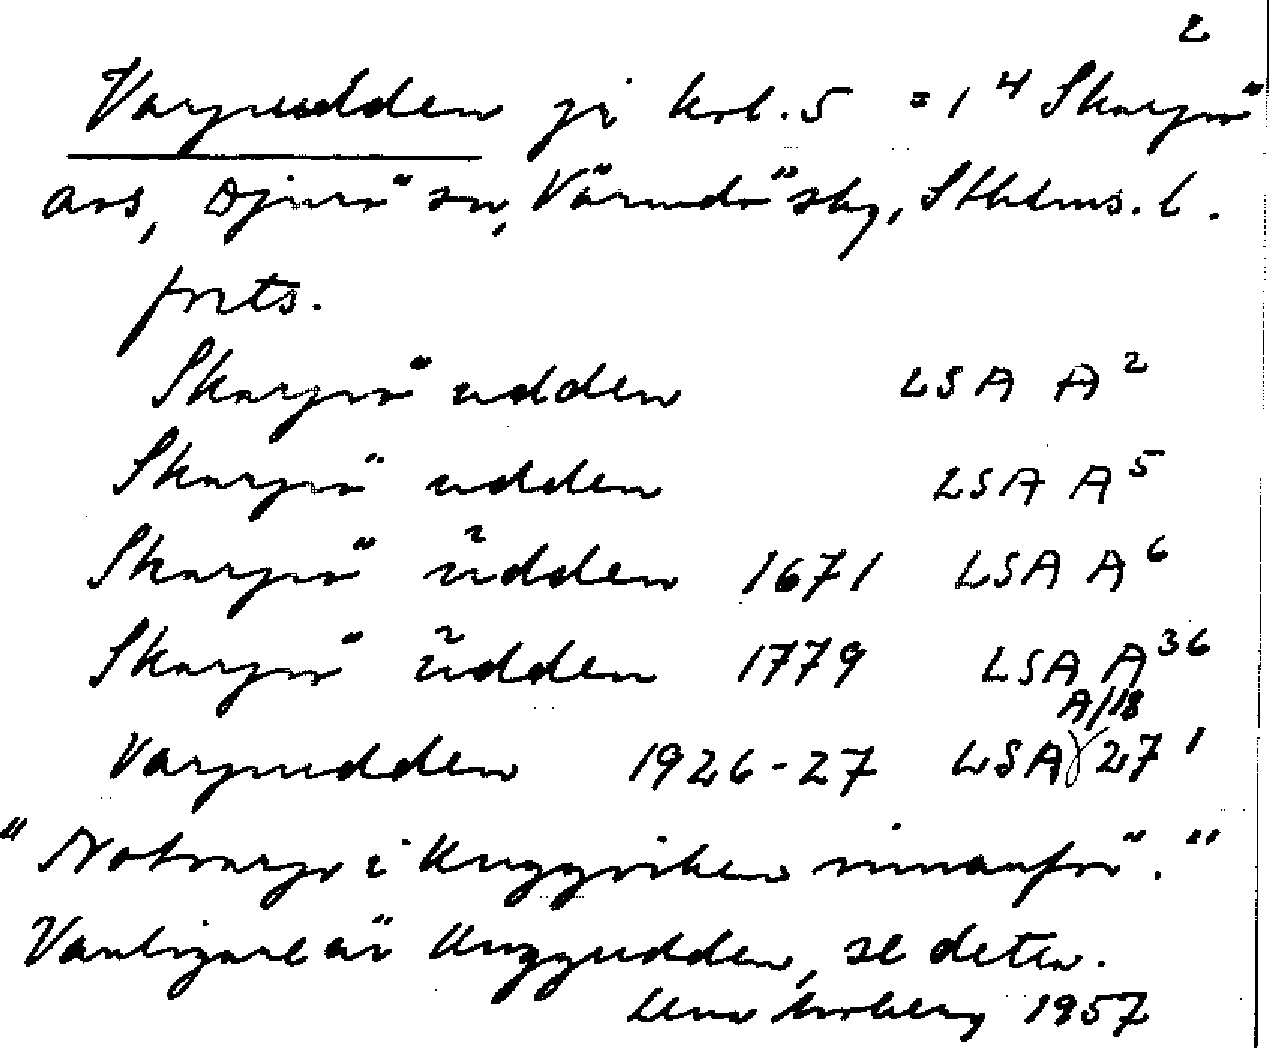 2
Varpudden på kbl. 5 = 1⁴ Skarpö
avs, Djurö sn, Värmdö sky, Sthlms. l.
forts.
Skarpö udden LSA A²
Skarpö udden LSA A⁵
Skarpö ůdden 1671 LSA A⁶
Skarpö ůdden 1779 LSA A³⁶
A/18
Varpudden 1926-27 LSA 27¹
"Notvarp i Kuggviken innanför."
Vanligare är Kuggudden, se detta.
1957